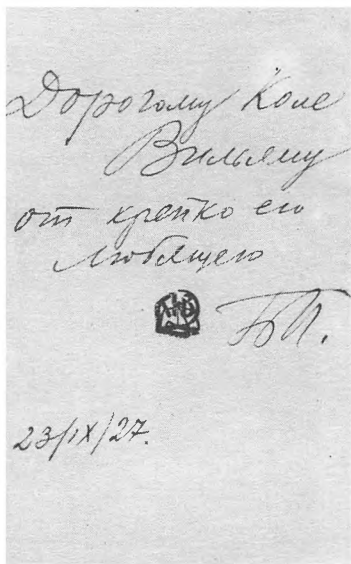 Дорогому Коле
Вильяму
от крепко его
любящего
БП.
23/IX/27.